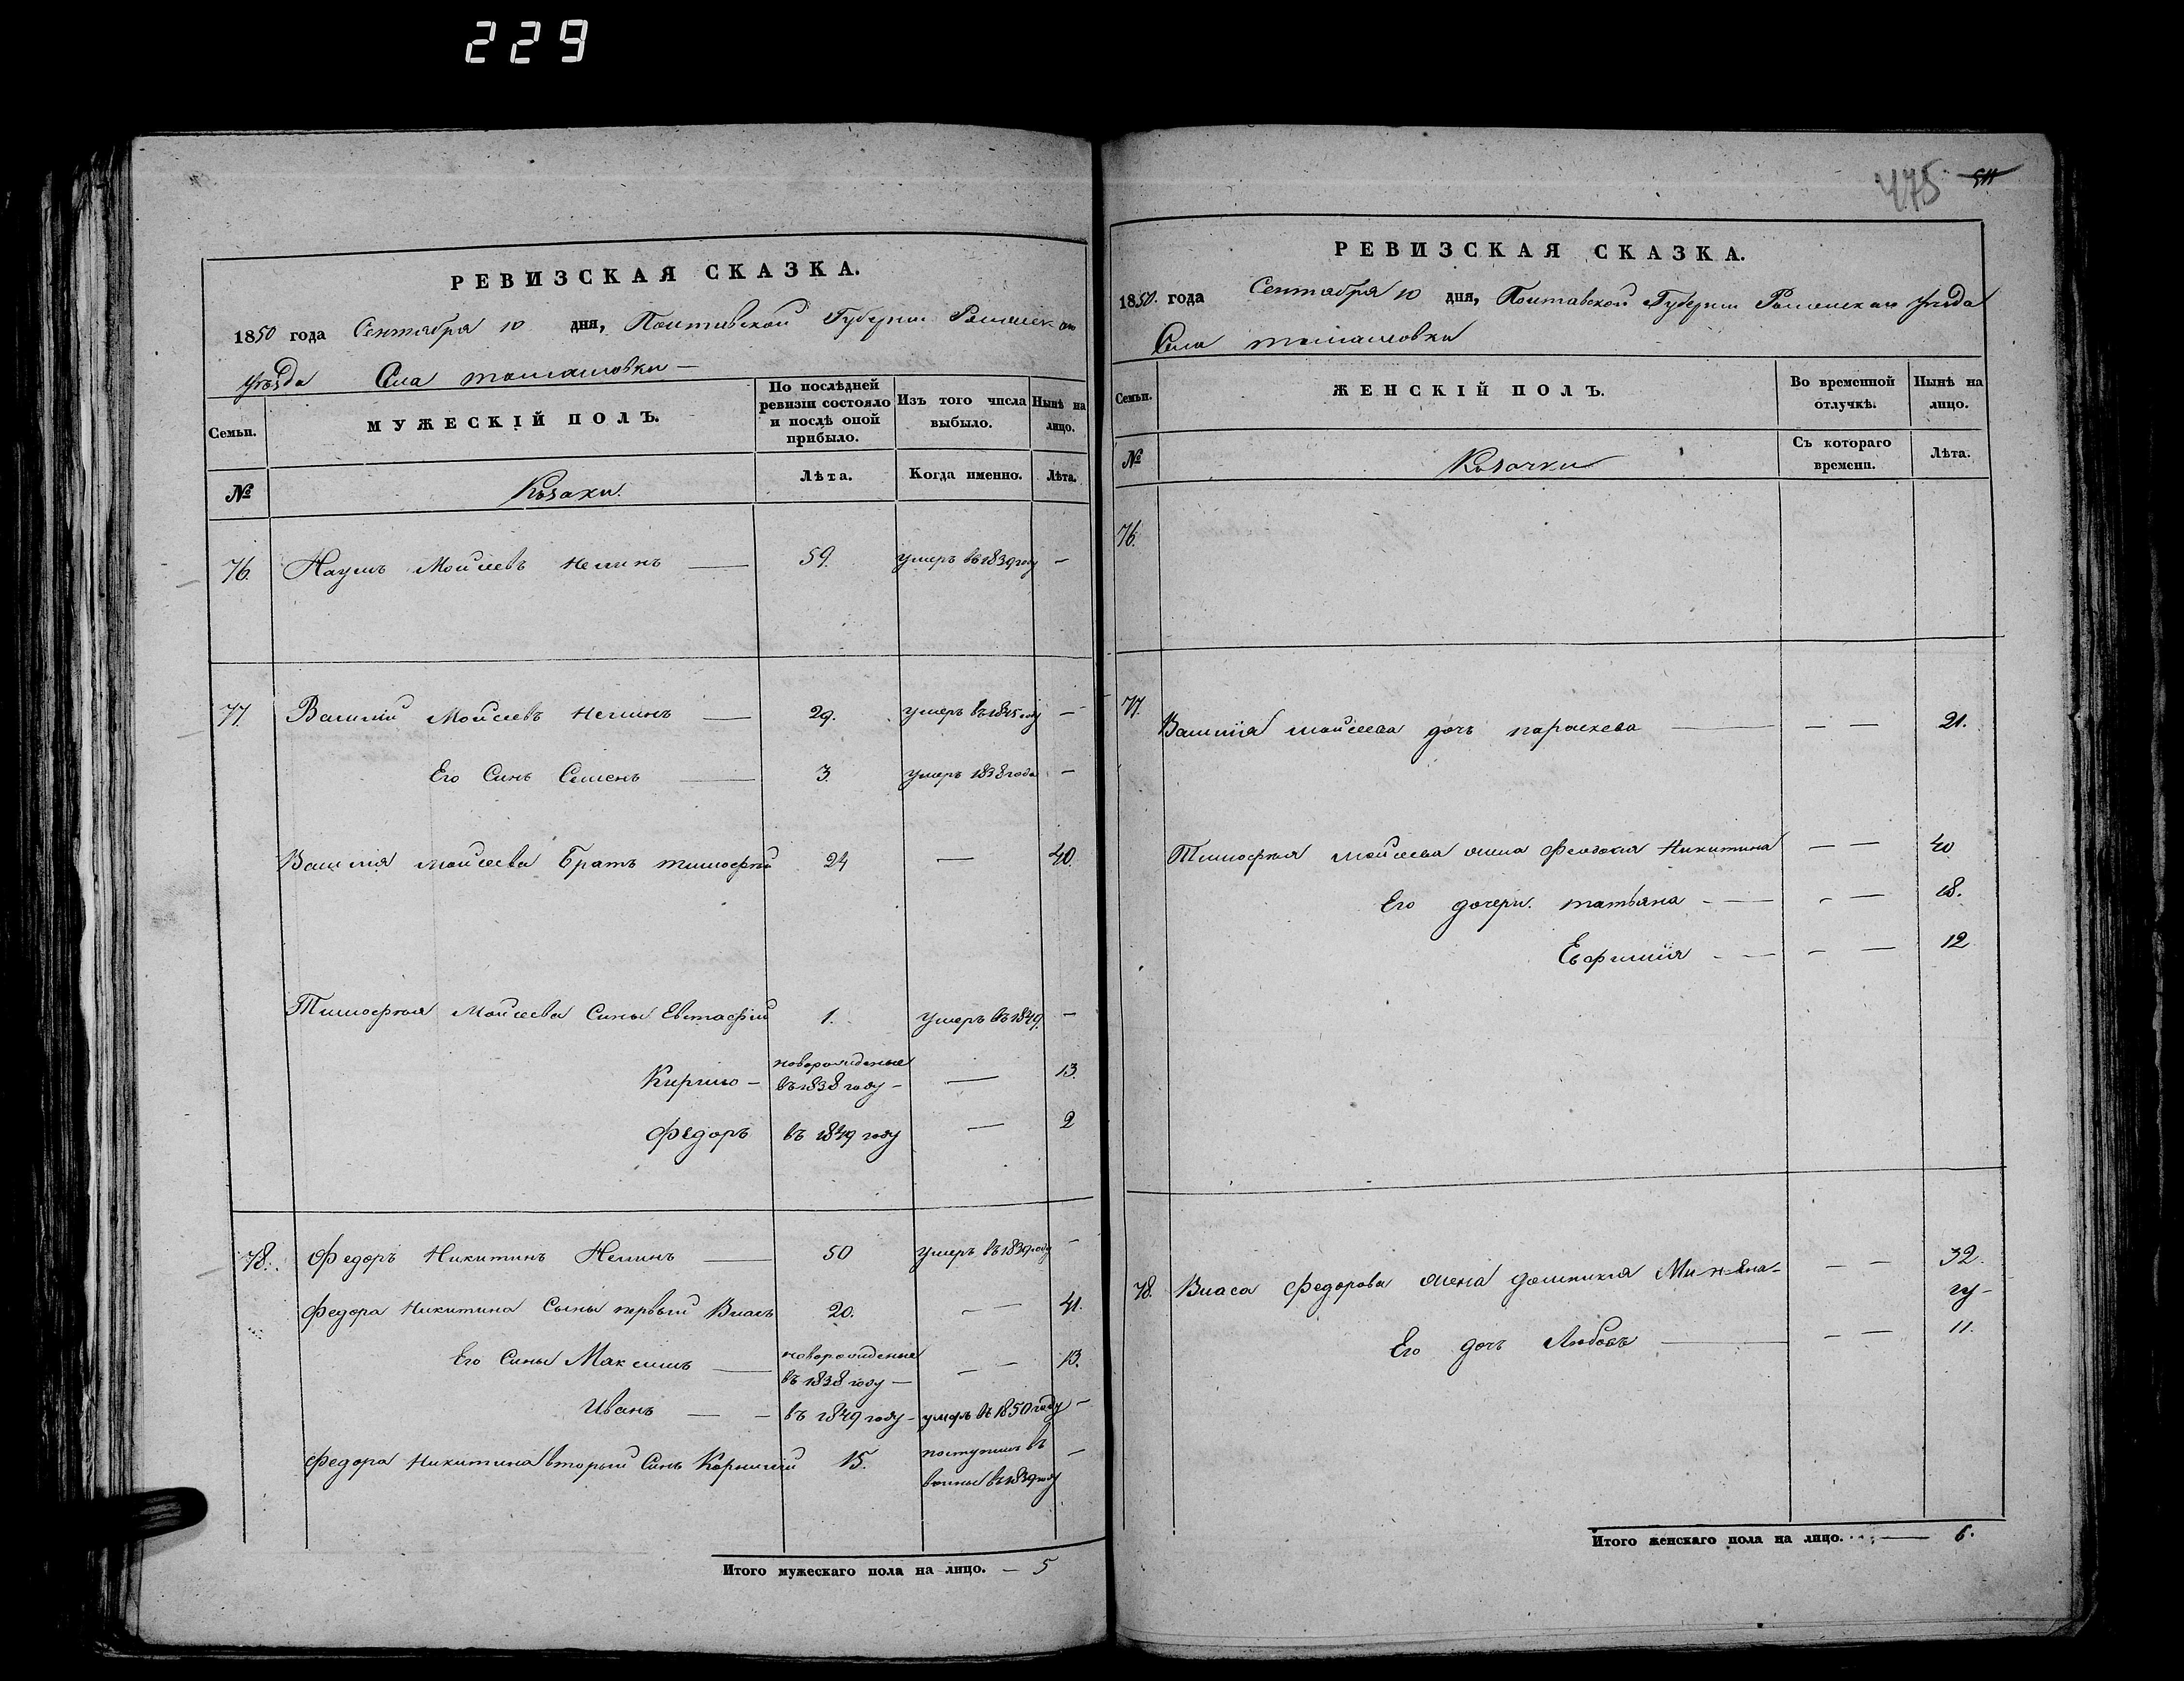 229
РЕВИЗСКАЯ СКАЗКА.
1850 года Сентября 10 дня, Полтавской Губерніи Роменскаго
уѣзда Села Томашовки —
Семьи.
МУЖЕСКІЙ ПОЛЪ.
По послѣдней ревизіи состояло и послѣ оной прибыло.
Изъ того числа выбыло.
Нынѣ на лицо.
№
Козаки.
Лѣта.
Когда именно.
Лѣта.
76. Наумъ Моисеевъ Неминъ — 59. умеръ въ 1839 году —
77 Василій Моисеевъ Неминъ — 29. умеръ въ 1845 году —
Его Синъ Семенъ — 3. умеръ 1838 года —
Василія Моисеева Братъ Тимофѣй 24 — 40.
Тимофѣя Моисеева Сины Евстафій 1. умеръ въ 1849. —
Кирило — новорожденые въ 1838 году — — 13.
Федоръ въ 1849 году — 2
78. Федоръ Никитинъ Неминъ — 50 умеръ въ 1839 году —
Федора Никитина Сыны первый Власъ 20. — — 41.
Его Сины Максимъ — новорожденые въ 1838 году — — — 13.
Иванъ — — въ 1849 году — умеръ въ 1850 году —
Федора Никитина вторый Синъ Корнилій 15. поступилъ въ —
воины въ 1839 году
Итого мужескаго пола на лицо. — 5
475 511
РЕВИЗСКАЯ СКАЗКА.
1850. года Сентября 10 дня, Полтавской Губерніи Роменскаго уѣзда
Села Томашовки
Семьи.
ЖЕНСКІЙ ПОЛЪ.
Во временной отлучкѣ.
Нынѣ на лицо.
№
Козачки
Съ котораго времени.
Лѣта.
76.
77. Василія Моисеева дочь Параскева — — — 21.
Тимофѣя Моисеева жена Феодосія Никитина — — 40
Его дочери. Татьяна — — — — 18.
Евфимія — — — — 12
78. Власа Федорова жена Домникія — — 32.
Его дочь Любовь — — — 11.
Итого женскаго пола на лицо. — 6.